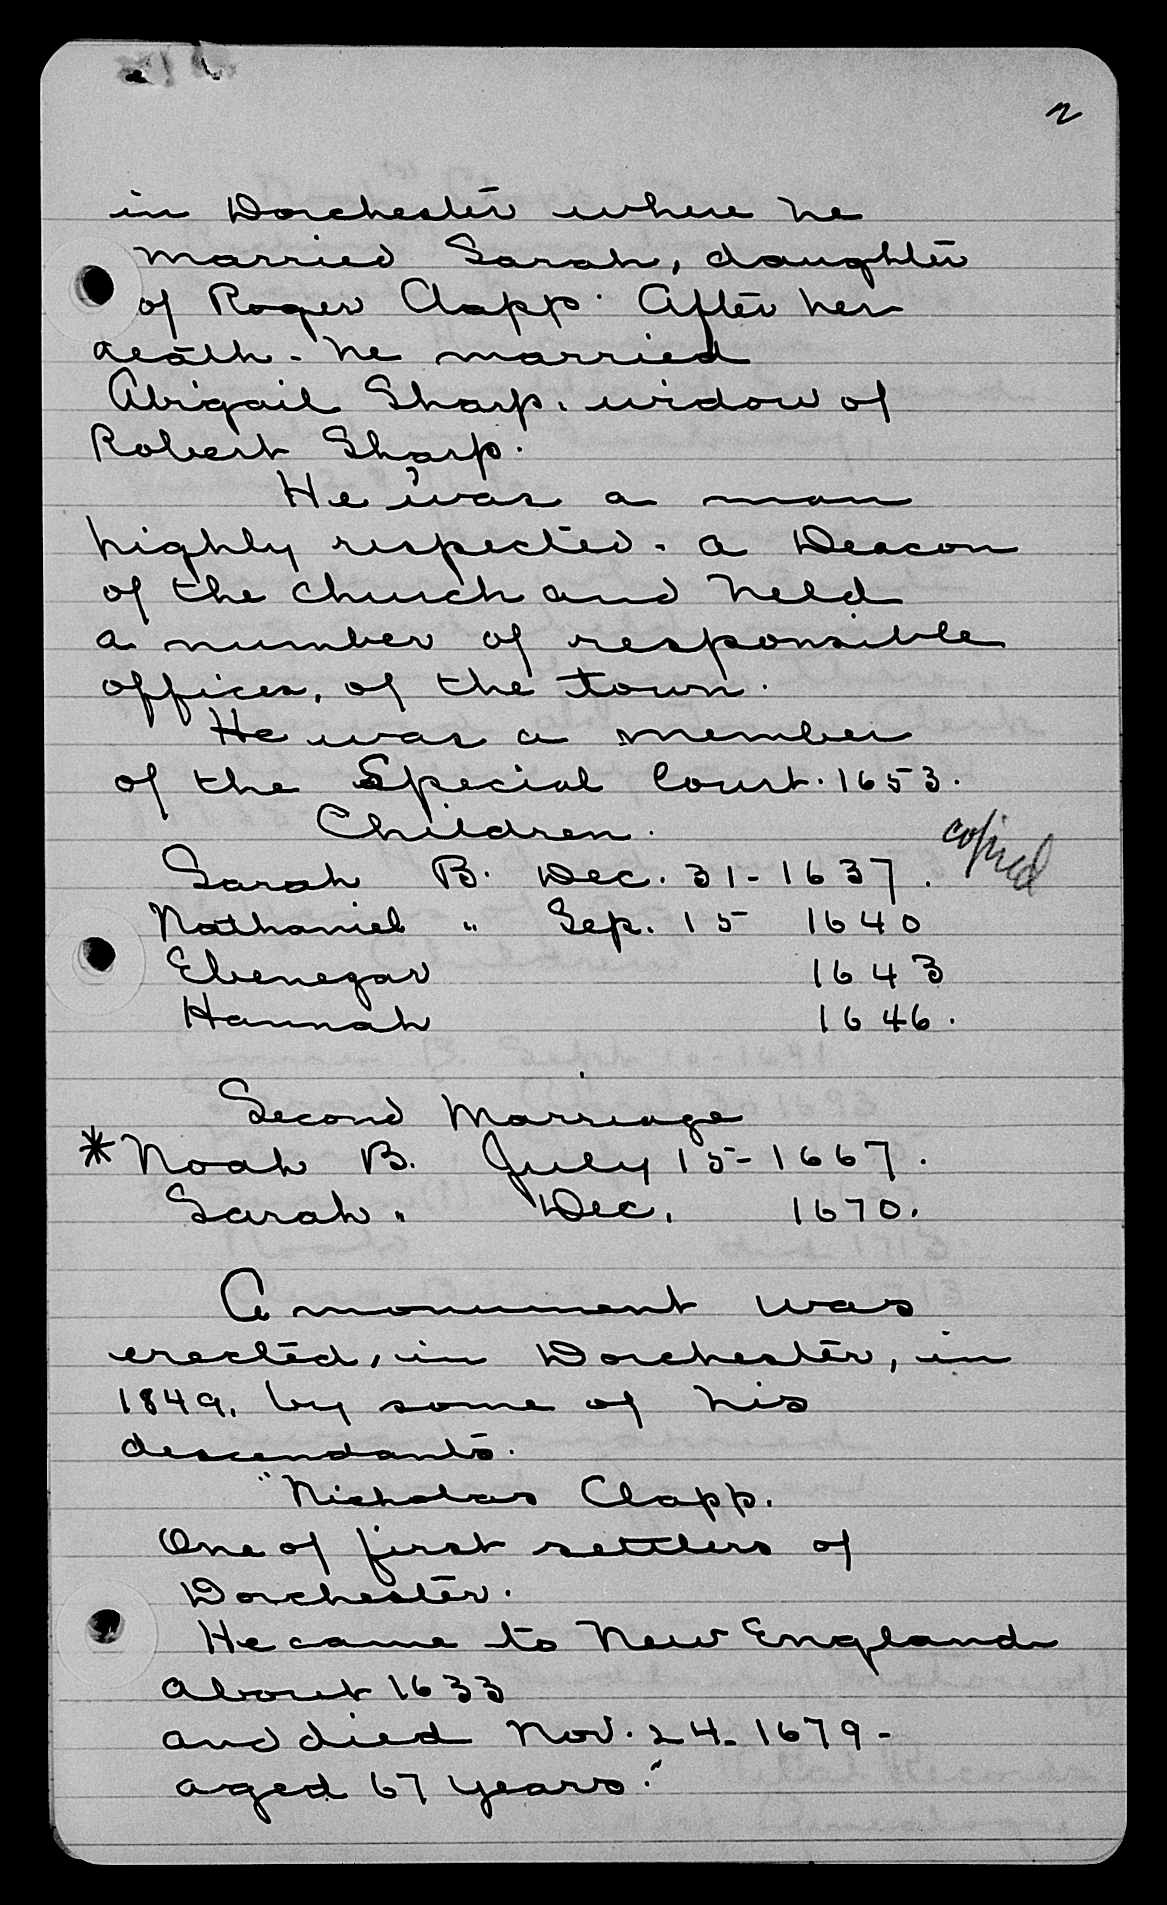 2
in Dorchester where he
married Sarah, daughter
of Roger Clapp. After her
death - he married
Abigail Sharp, widow of
Robert Sharp.
He was a man
highly respected. a Deacon
of the church and held
a number of responsible
offices, of the town.
He was a member
of the Special Court. 1653.
Children.
copied
Sarah B. Dec. 31-1637.
Nathaniel " Sep. 15 1640
Ebenezar 1643
Hannah 1646.
Second Marriage
* Noah B. July 15-1667.
Sarah " Dec. 1670.
A monument was
erected, in Dorchester, in
1849, by some of his
descendants.
"Nicholas Clapp.
One of first settlers of
Dorchester.
He came to New England
about 1633
and died Nov. 24-1679-
aged 67 years."